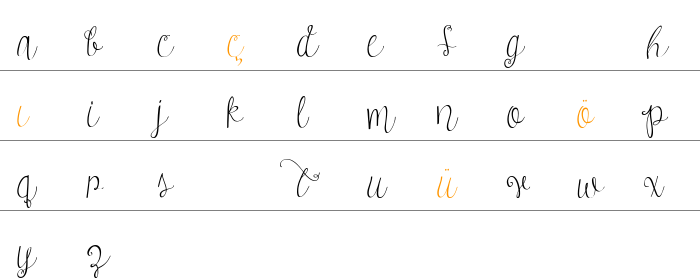 a b c ç d e f g h
ı i j k l m n o ö p
q r s t u ü v w x
y z